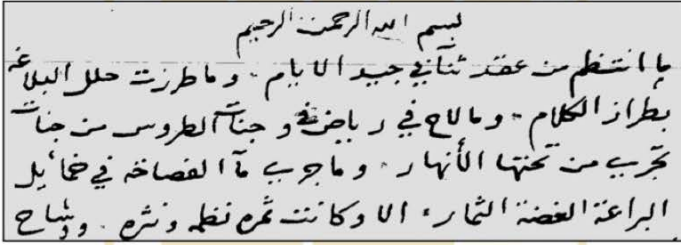 بسم الله الرحمن الرحيم
ما انتظم من عقد ثنآ في جيد الايام . وما طرزت حلل البلاغه
بطراز الكلام . وما لاح في رياض وجنات الطروس من جنات
تجرى من تحتها الأنهار . وما جرى مآ الفصاحه في خمايل
البراعة الغضة الثمار ، الا وكانت ثمره نظمه ونثره . ووشاح